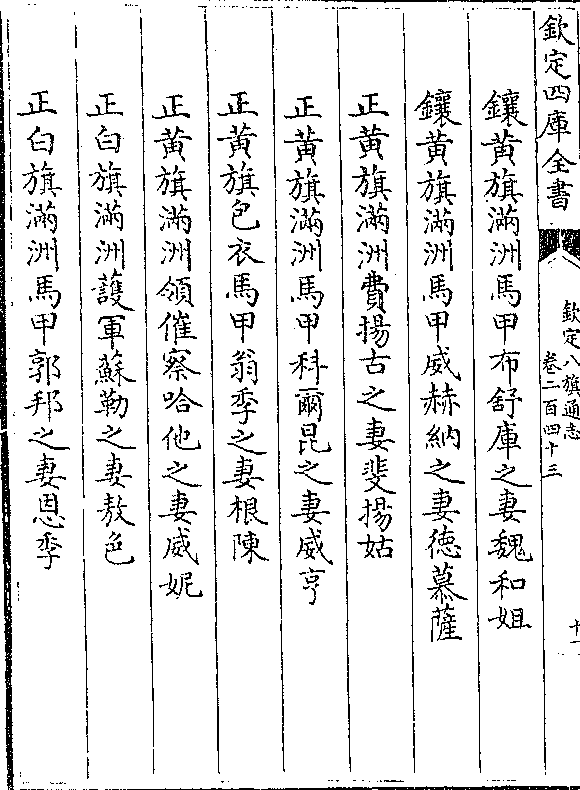 欽定四庫全書
欽定八旗通志
卷二百四十三
十一
鑲黃旗滿洲馬甲布舒庫之妻魏和姐
鑲黃旗滿洲馬甲威赫納之妻徳慕薩
正黃旗滿洲費揚古之妻斐揚姑
正黃旗滿洲馬甲科爾昆之妻威亨
正黃旗包衣馬甲翁季之妻根陳
正黃旗滿洲領催察哈他之妻威妮
正白旗滿洲護軍蘇勒之妻敖色
正白旗滿洲馬甲郭邦之妻恩季